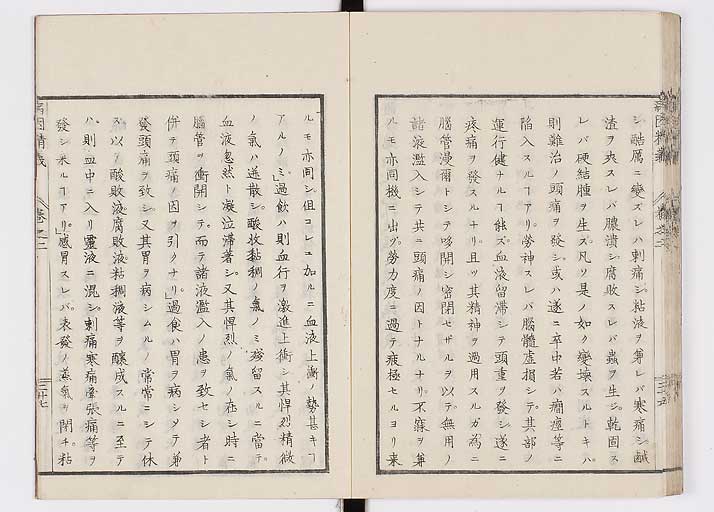 シ酷厲ニ變スレハ刺痛シ粘液ヲ兼レバ寒痛シ鹹
渣ヲ夾スレバ膿潰シ腐敗スレバ蟲ヲ生ジ乾固ス
レバ硬結腫ヲ生ズ凡ソ是ノ如ク變壊スルトキハ
則難治ノ頭痛ヲ發シ或ハ遂ニ卒中若ハ癇痙等ニ
陥入スルヿアリ。勞神スレバ腦髓虚損シテ其部ノ
運行健ナルヿ能ズ血液留滞シテ頭重ヲ發シ遂ニ
疼痛ヲ發スルナリ且ツ其精神ヲ過用スルガ為ニ
腦管漫爾トシテ哆開シ密閉セザルヲ以テ無用ノ
諸液濫入シテ共ニ頭痛ノ因トナルナリ。不寐ヲ兼
ルモ亦同機ニ出ヅ。勞力度ニ過テ疲極セルヨリ来
ルモ亦同シ但コレニ加ルニ血液上衝ノ勢甚キヿ
アルノミ」過飲ハ則血行ヲ激進上衝シ其悍烈精微
ノ氣ハ迸散シ酸收黏稠ノ氣ノミ殘留スルニ當テ
血液忽然ト凝泣滞著シ又其悍烈ノ氣ノ在シ時ニ
腦管ヲ衝開シテ而テ諸液濫入ノ患ヲ致セシ者ト
併テ頭痛ノ因ヲ引クナリ」過食ハ胃ヲ病シメテ兼
發頭痛ヲ致シ又其胃ヲ病シムルノ常常ニシテ休
ズ以テ酸敗液腐敗液粘稠液等ヲ釀成スルニ至テ
ハ則血中ニ入リ靈液ニ混シ刺痛寒痛牽張痛等ヲ
發シ来ルヿアリ」感冒スレバ表發ノ蒸氣ヲ閉チ粘
病因精義
卷之二
三ノ廿七